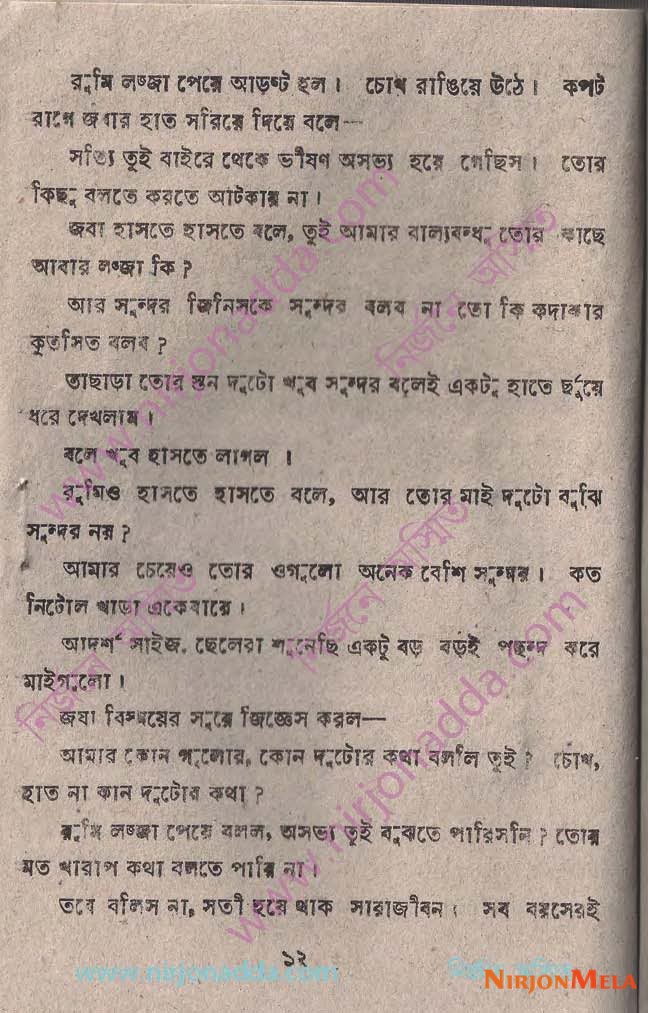 রুমি লজ্জা পেয়ে আড়ষ্ট হল। চোখ রাঙিয়ে উঠে। কপট
রাগে জবার হাত সরিয়ে দিয়ে বলে—
সত্যি তুই বাইরে থেকে ভীষণ অসভ্য হয়ে গেছিস। তোর
কিছু বলতে করতে আটকায় না।
জবা হাসতে হাসতে বলে, তুই আমার বাল্যবন্ধু তোর কাছে
আবার লজ্জা কি?
আর সুন্দর জিনিসকে সুন্দর বলব না তো কি কদাকার
কুতসিত বলব?
তাছাড়া তোর স্তন দুটো খুব সুন্দর বলেই একটু হাতে ছুঁয়ে
ধরে দেখলাম।
বলে খুব হাসতে লাগল।
রুমিও হাসতে হাসতে বলে, আর তোর মাই দুটো বুঝি
সুন্দর নয়?
আমার চেয়েও তোর ওগুলো অনেক বেশি সুন্দর। কত
নিটোল খাড়া একেবারে।
আদর্শ সাইজ. ছেলেরা শুনেছি একটু বড় বড়ই পছন্দ করে
মাইগুলো।
জবা বিস্ময়ের সুরে জিজ্ঞেস করল—
আমার কোন গুলোর, কোন দুটোর কথা বললি তুই? চোখ,
হাত না কান দুটোর কথা?
রুমি লজ্জা পেয়ে বলল, অসভ্য তুই বুঝতে পারিসনি? তোর
মত খারাপ কথা বলতে পারি না।
তবে বলিস না, সতী হয়ে থাক সারাজীবন। সব বয়সেরই
১২
www.nirjonadda.com
NIRJONMELA
www.nirjonadda.com
www.nirjonadda.com
নির্জনে অস্মিত
নির্জনে অস্মিত
নির্জনে অস্মিত